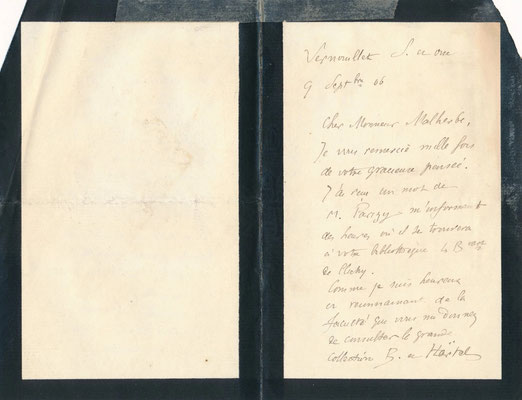 Vernouillet S. et Oise
9 Septbre 06
Cher Monsieur Malherbe,
Je vous remercie mille fois
de votre gracieuse pensée.
J'ai reçu un mot de
M. Parigy m'informant
des heures où il se trouvera
à votre bibliothèque 4 Bvard
de Clichy.
Comme je suis heureux
et reconnaissant de la
faculté que vous me donnez
de consulter la grande
collection B. et Härtel